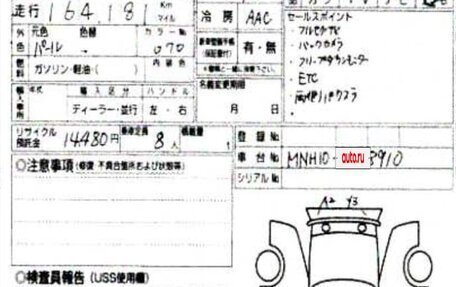 走行 164,181 Km マイル
冷房 AAC
セールスポイント
・フルセグTV
・バックカメラ
・フリップダウンモニター
・ETC
・両側パワスラ
外色 元色 色替 カラーNo
パール 070
有・無
燃料 ガソリン・軽油・( ) 内装色
輸入車 年式 輸入区分 ハンドル
ディーラー・並行 左・右
名義変更期限
月 日
リサイクル預託金 14,480円 乗車定員 8人 積載量 t
登録No
車台No MNH10- auto.ru 3910
シリアルNo
◎注意事項(修復・不具合箇所および状態等)
A2 Y3
◎検査員報告(USS使用欄)